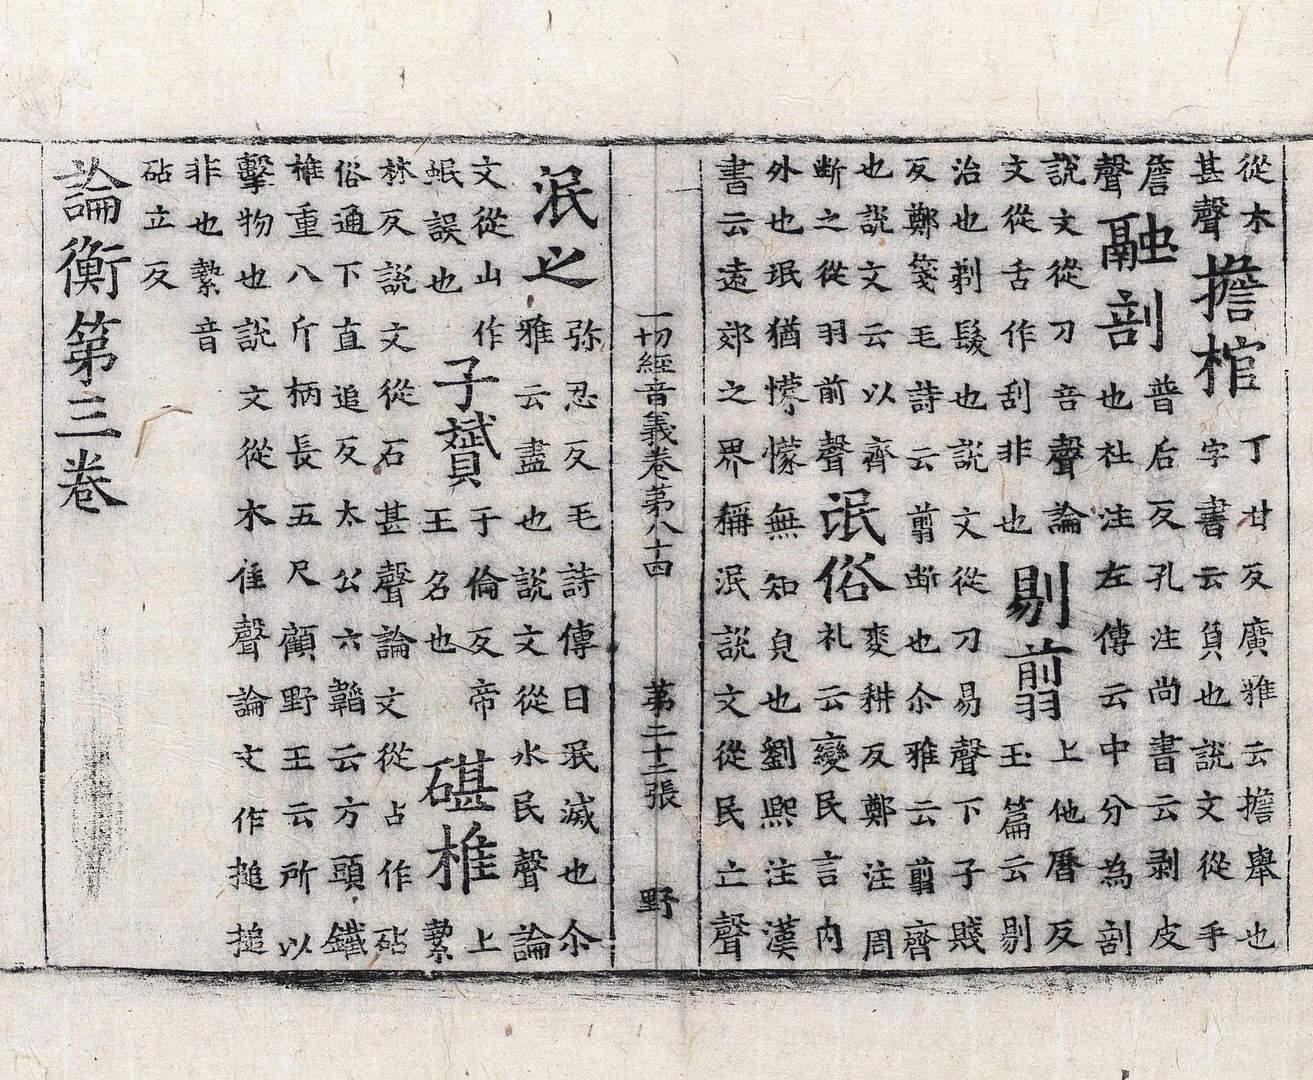 從木
甚聲
擔棺
丁甘反廣雅云擔舉也
字書云負也說文從手
詹
聲
融剖
普后反孔注尚書云剥皮
也杜注左傳云中分為剖
說文從刀咅聲論
文從舌作刮非也
剔翦
上他曆反
玉篇云剔
治也剃髮也說文從刀易聲下子賤
反鄭箋毛詩云翦斷也尒雅云翦齊
也說文云以齊
斷之從羽前聲
氓俗
麥耕反鄭注周
礼云變民言内
外也珉猶懞懞無知皃也劉熙注漢
書云遠郊之界稱泯說文從民亡聲
一切經音義卷第八十四 第二十二張 野
泯之
弥忍反毛詩傳曰泯滅也尒
雅云盡也說文從水民聲論
文從山作
岷誤也
子贇
于倫反帝
王名也
碪椎
上
縶
林反說文從石甚聲論文從占作砧
俗通下直追反太公六韜云方頭鐵
椎重八斤柄長五尺顧野王云所以
擊物也說文從木隹聲論文作搥搥
非也縶音
砧立反
論衡第三卷